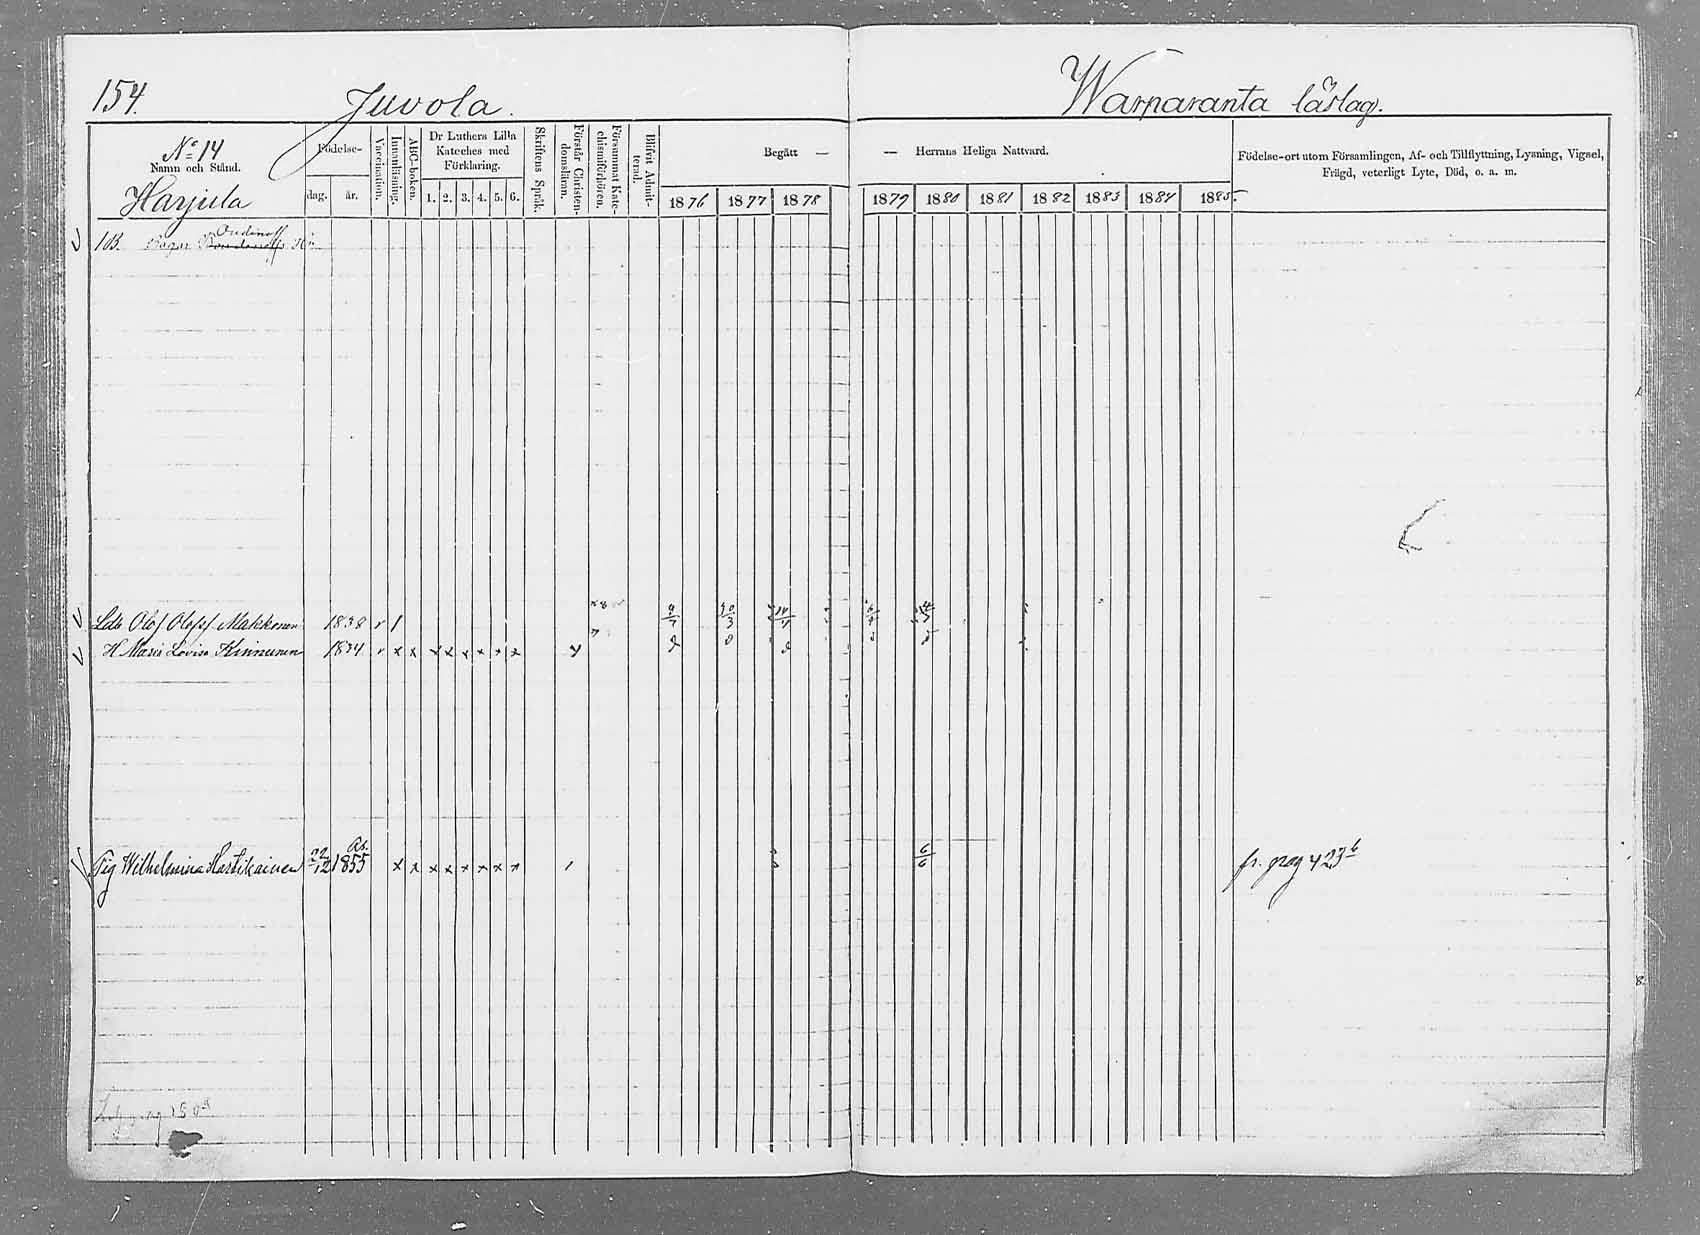 154.
Juvola.
Warparanta läslag.
No 14
Namn och Stånd.
Harjula
Födelse-
dag. år.
Vaccination.
Innanläsning.
ABC-boken.
Dr Luthers Lilla
Kateches med
Förklaring.
1. 2. 3. 4. 5. 6.
Skriftens Språk.
Förstår Christen-
domsläran.
Försummat Kate-
chismiförhören.
Blifvit Admit-
terad.
Begått —
— Herrans Heliga Nattvard.
1876 1877 1878 1879 1880 1881 1882 1883 1884 1885.
Födelse-ort utom Församlingen, Af- och Tillflyttning, Lysning, Vigsel,
Frägd, veterligt Lyte, Död, o. a. m.
1 B.
Olof Olofsf Makkonen 1838
H Maria Lovisa Kinnunen 1834 x x x x x x x x
Pig Wilhelmina Hartikainen 22/12 1855 x x x x x x x x 6/6 fr. pag 423